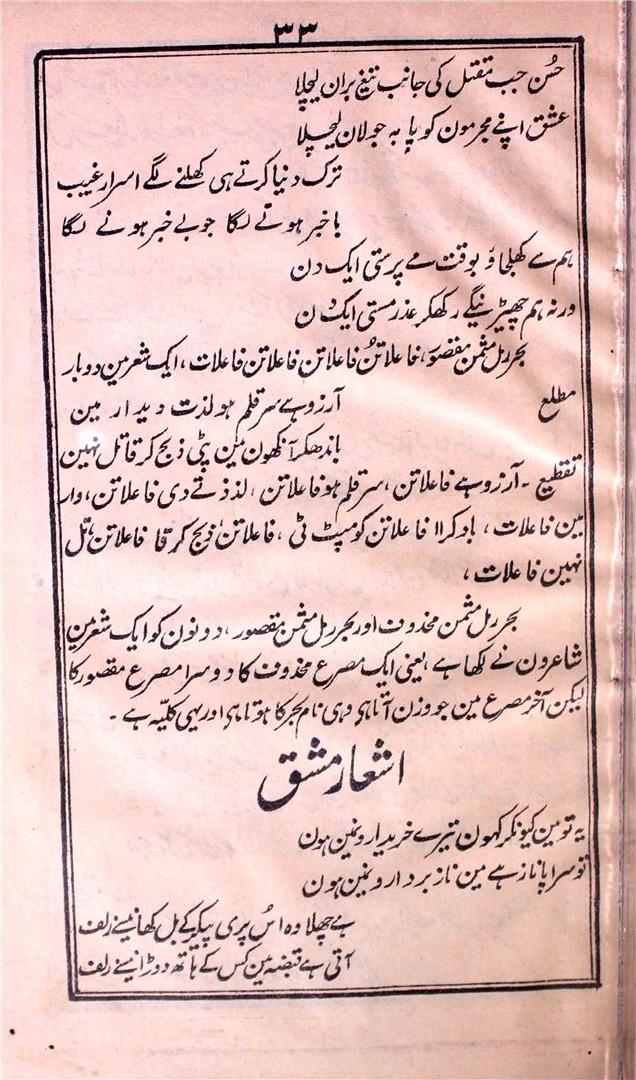 ۳۳
حُسن جب مقتل کی جانب تیغ بران لیچلا
عشق اپنے مجرمون کو پا بہ جولان لیچلا
ترک دنیا کرتے ہی کھلنے لگے اسرار غیب
باخبر ہونے لگا جو بے خبر ہونے لگا
ہم سے کھلجاؤ بوقت مے پرستی ایک دن
ورنہ ہم چھیڑینگے رکھکر عذر مستی ایک دن
بحر رمل مثمن مقصور، فاعلاتن فاعلاتن فاعلاتن فاعلات، ایک شعر مین دوبار
مطلع آرزو ہے سر قلم ہو لذت دیدار مین
باندھکر آنکھون مین پٹی ذبح کر قاتل نہین
تقطیع ۔ آرزو ہے فاعلاتن، سر قلم ہو فاعلاتن، لذذتے دی فاعلاتن، دار
مین فاعلات، باد کراا فاعلاتن کومپٹ ٹی، فاعلاتن ذبح کر قا فاعلاتن، تل
نہین فاعلات،
بحر رمل مثمن محذوف اور بحر رمل مثمن مقصور، دونون کو ایک شعر مین
شاعرون نے لکھا ہے، یعنی ایک مصرع محذوف کا دوسرا مصرع مقصور کا
لیکن آخر مصرع مین جو وزن آتا ہی وہی نام بحر کا ہوتا ہی اور یہی کلیّہ ہے ۔
اشعار مشق
یہ تو مین کیونکر کہون تیرے خریدارونمین ہون
تو سراپا ناز ہے مین ناز بردارونمین ہون
ہے چھلاوہ اُس پری پیکر کے بل کھانیسے زلف
آتی ہے قبضہ مین کس کے ہاتھ دوڑانیسے زلف